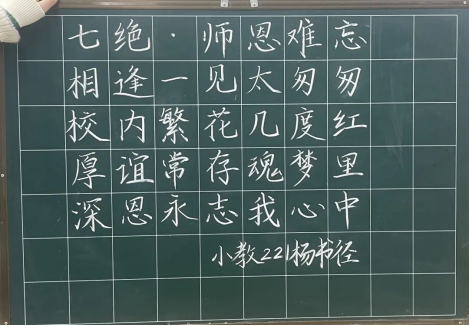 七绝·师恩难忘
相逢一见太匆匆
校内繁花几度红
厚谊常存魂梦里
深恩永志我心中
小教221杨书径